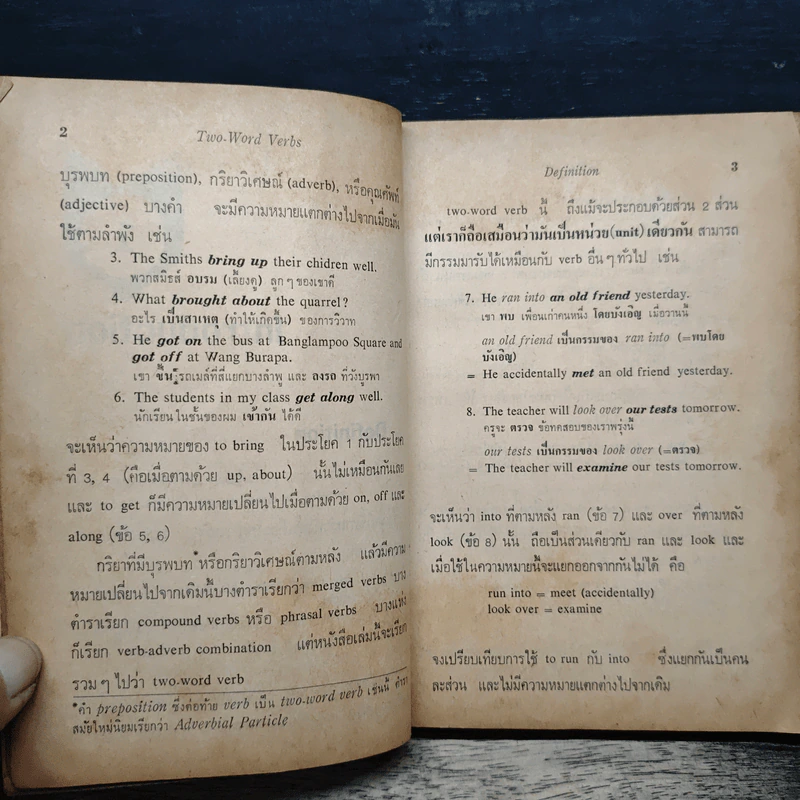 2
Two-Word Verbs
บุรพบท (preposition), กริยาวิเศษณ์ (adverb), หรือคุณศัพท์
(adjective) บางคำ จะมีความหมายแตกต่างไปจากเมื่อมัน
ใช้ตามลำพัง เช่น
3. The Smiths bring up their chidren well.
พวกสมิธส์ อบรม (เลี้ยงดู) ลูก ๆ ของเขาดี
4. What brought about the quarrel?
อะไร เป็นสาเหตุ (ทำให้เกิดขึ้น) ของการวิวาท
5. He got on the bus at Banglampoo Square and
got off at Wang Burapa.
เขา ขึ้น รถเมล์ที่สี่แยกบางลำพู และ ลงรถ ที่วังบูรพา
6. The students in my class get along well.
นักเรียนในชั้นของผม เข้ากัน ได้ดี
จะเห็นว่าความหมายของ to bring ในประโยค 1 กับประโยค
ที่ 3, 4 (คือเมื่อตามด้วย up, about) นั้นไม่เหมือนกันเลย
และ to get ก็มีความหมายเปลี่ยนไปเมื่อตามด้วย on, off และ
along (ข้อ 5, 6)
กริยาที่มีบุรพบท*หรือกริยาวิเศษณ์ตามหลัง แล้วมีความ
หมายเปลี่ยนไปจากเดิมนี้บางตำราเรียกว่า merged verbs บาง
ตำราเรียก compound verbs หรือ phrasal verbs บางแห่ง
ก็เรียก verb-adverb combination แต่หนังสือเล่มนี้จะเรียก
รวม ๆ ไปว่า two-word verb
*คำ preposition ซึ่งต่อท้าย verb เป็น two-word verb เช่นนี้ ตำรา
สมัยใหม่นิยมเรียกว่า Adverbial Particle
Definition
3
two-word verb นี้ ถึงแม้จะประกอบด้วยส่วน 2 ส่วน
แต่เราก็ถือเสมือนว่ามันเป็นหน่วย(unit) เดียวกัน สามารถ
มีกรรมมารับได้เหมือนกับ verb อื่น ๆ ทั่วไป เช่น
7. He ran into an old friend yesterday.
เขา พบ เพื่อนเก่าคนหนึ่ง โดยบังเอิญ เมื่อวานนี้
an old friend เป็นกรรมของ ran into (=พบโดย
บังเอิญ)
= He accidentally met an old friend yesterday.
8. The teacher will look over our tests tomorrow.
ครูจะ ตรวจ ข้อทดสอบของเราพรุ่งนี้
our tests เป็นกรรมของ look over (=ตรวจ)
= The teacher will examine our tests tomorrow.
จะเห็นว่า into ที่ตามหลัง ran (ข้อ 7) และ over ที่ตามหลัง
look (ข้อ 8) นั้น ถือเป็นส่วนเดียวกับ ran และ look และ
เมื่อใช้ในความหมายนี้จะแยกออกจากกันไม่ได้ คือ
run into = meet (accidentally)
look over = examine
จงเปรียบเทียบการใช้ to run กับ into ซึ่งแยกกันเป็นคน
ละส่วน และไม่มีความหมายแตกต่างไปจากเดิม